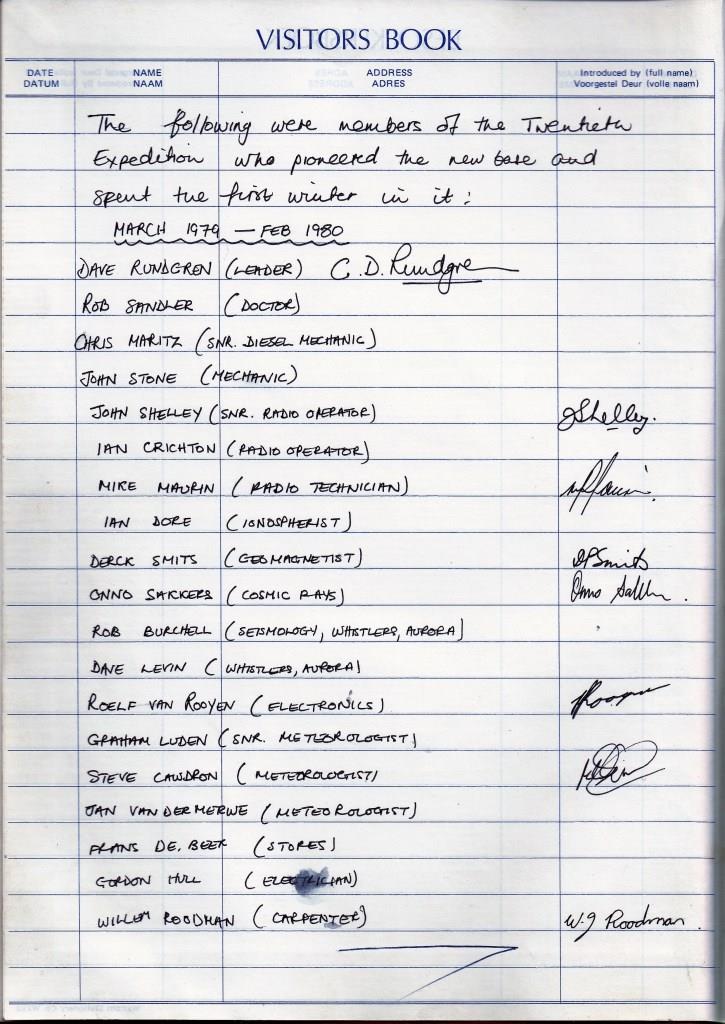 VISITORS BOOK
DATE NAME ADDRESS Introduced by (full name)
DATUM NAAM ADRES Voorgestel Deur (volle naam)
The following were members of the Twentieth
Expedition who pioneered the new base and
spent the first winter in it :
MARCH 1979 — FEB 1980
DAVE RUNDGREN (LEADER) C. D. Rundgren
ROB SANDLER (DOCTOR)
CHRIS MARITZ (SNR. DIESEL MECHANIC)
JOHN STONE (MECHANIC)
JOHN SHELLEY (SNR. RADIO OPERATOR) J Shelley.
IAN CRICHTON (RADIO OPERATOR)
MIKE MAURIN (RADIO TECHNICIAN)
IAN DORE (IONOSPHERIST)
DERCK SMITS (GEOMAGNETIST) DP Smits
ONNO SAKKERS (COSMIC RAYS) Onno Sakkers.
ROB BURCHELL (SEISMOLOGY, WHISTLERS, AURORA)
DAVE LEVIN (WHISTLERS, AURORA)
ROELF VAN ROOYEN (ELECTRONICS)
GRAHAM LUDEN (SNR. METEOROLOGIST)
STEVE CAWDRON (METEOROLOGIST)
JAN VAN DER MERWE (METEOROLOGIST)
FRANS DE. BEER (STORES)
GORDON HULL (ELECTRICIAN)
WILLEM ROODMAN (CARPENTER) W. J Roodman.